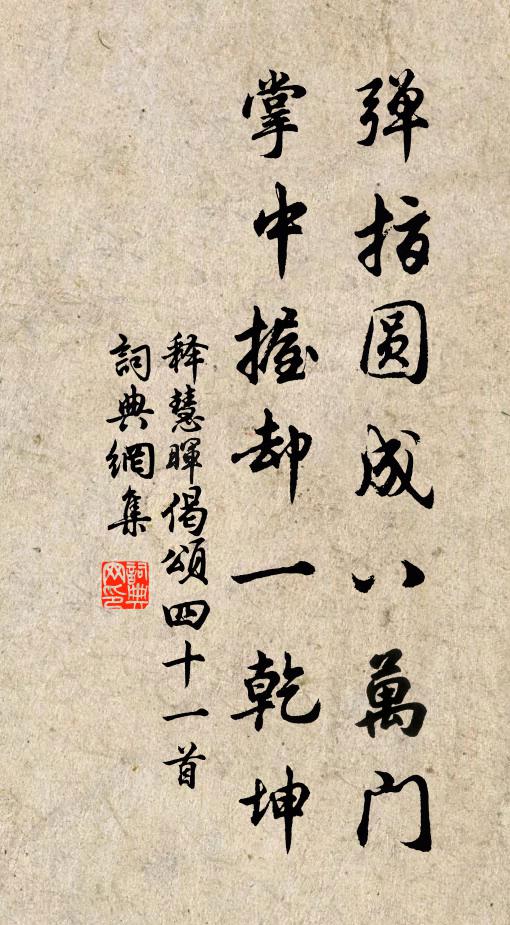 弹指圆成八萬门
掌中握却一乾坤
释慧暉偈頌四十一首
詞典網集
詞典网印